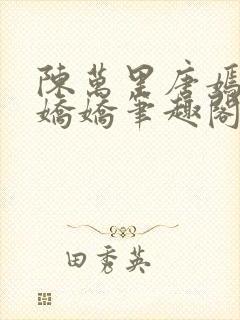 陳萬里唐嫣
嬌嬌筆趣閣
田秀英